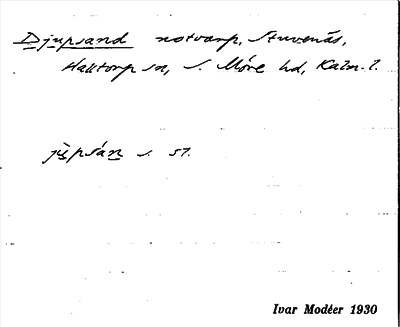 Djupsand notvarp, Stuvenäs,
Halltorp sn, S. Möre hd, Kalm. l.
jùpsán s. st.
Ivar Modéer 1930